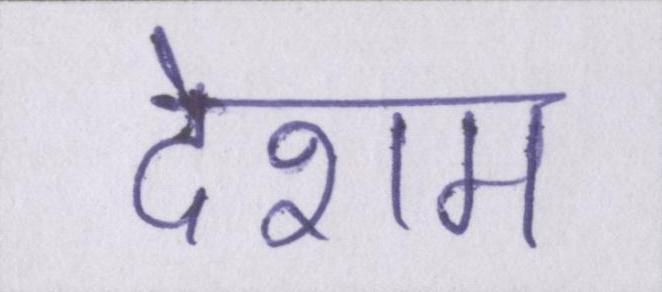 देशम